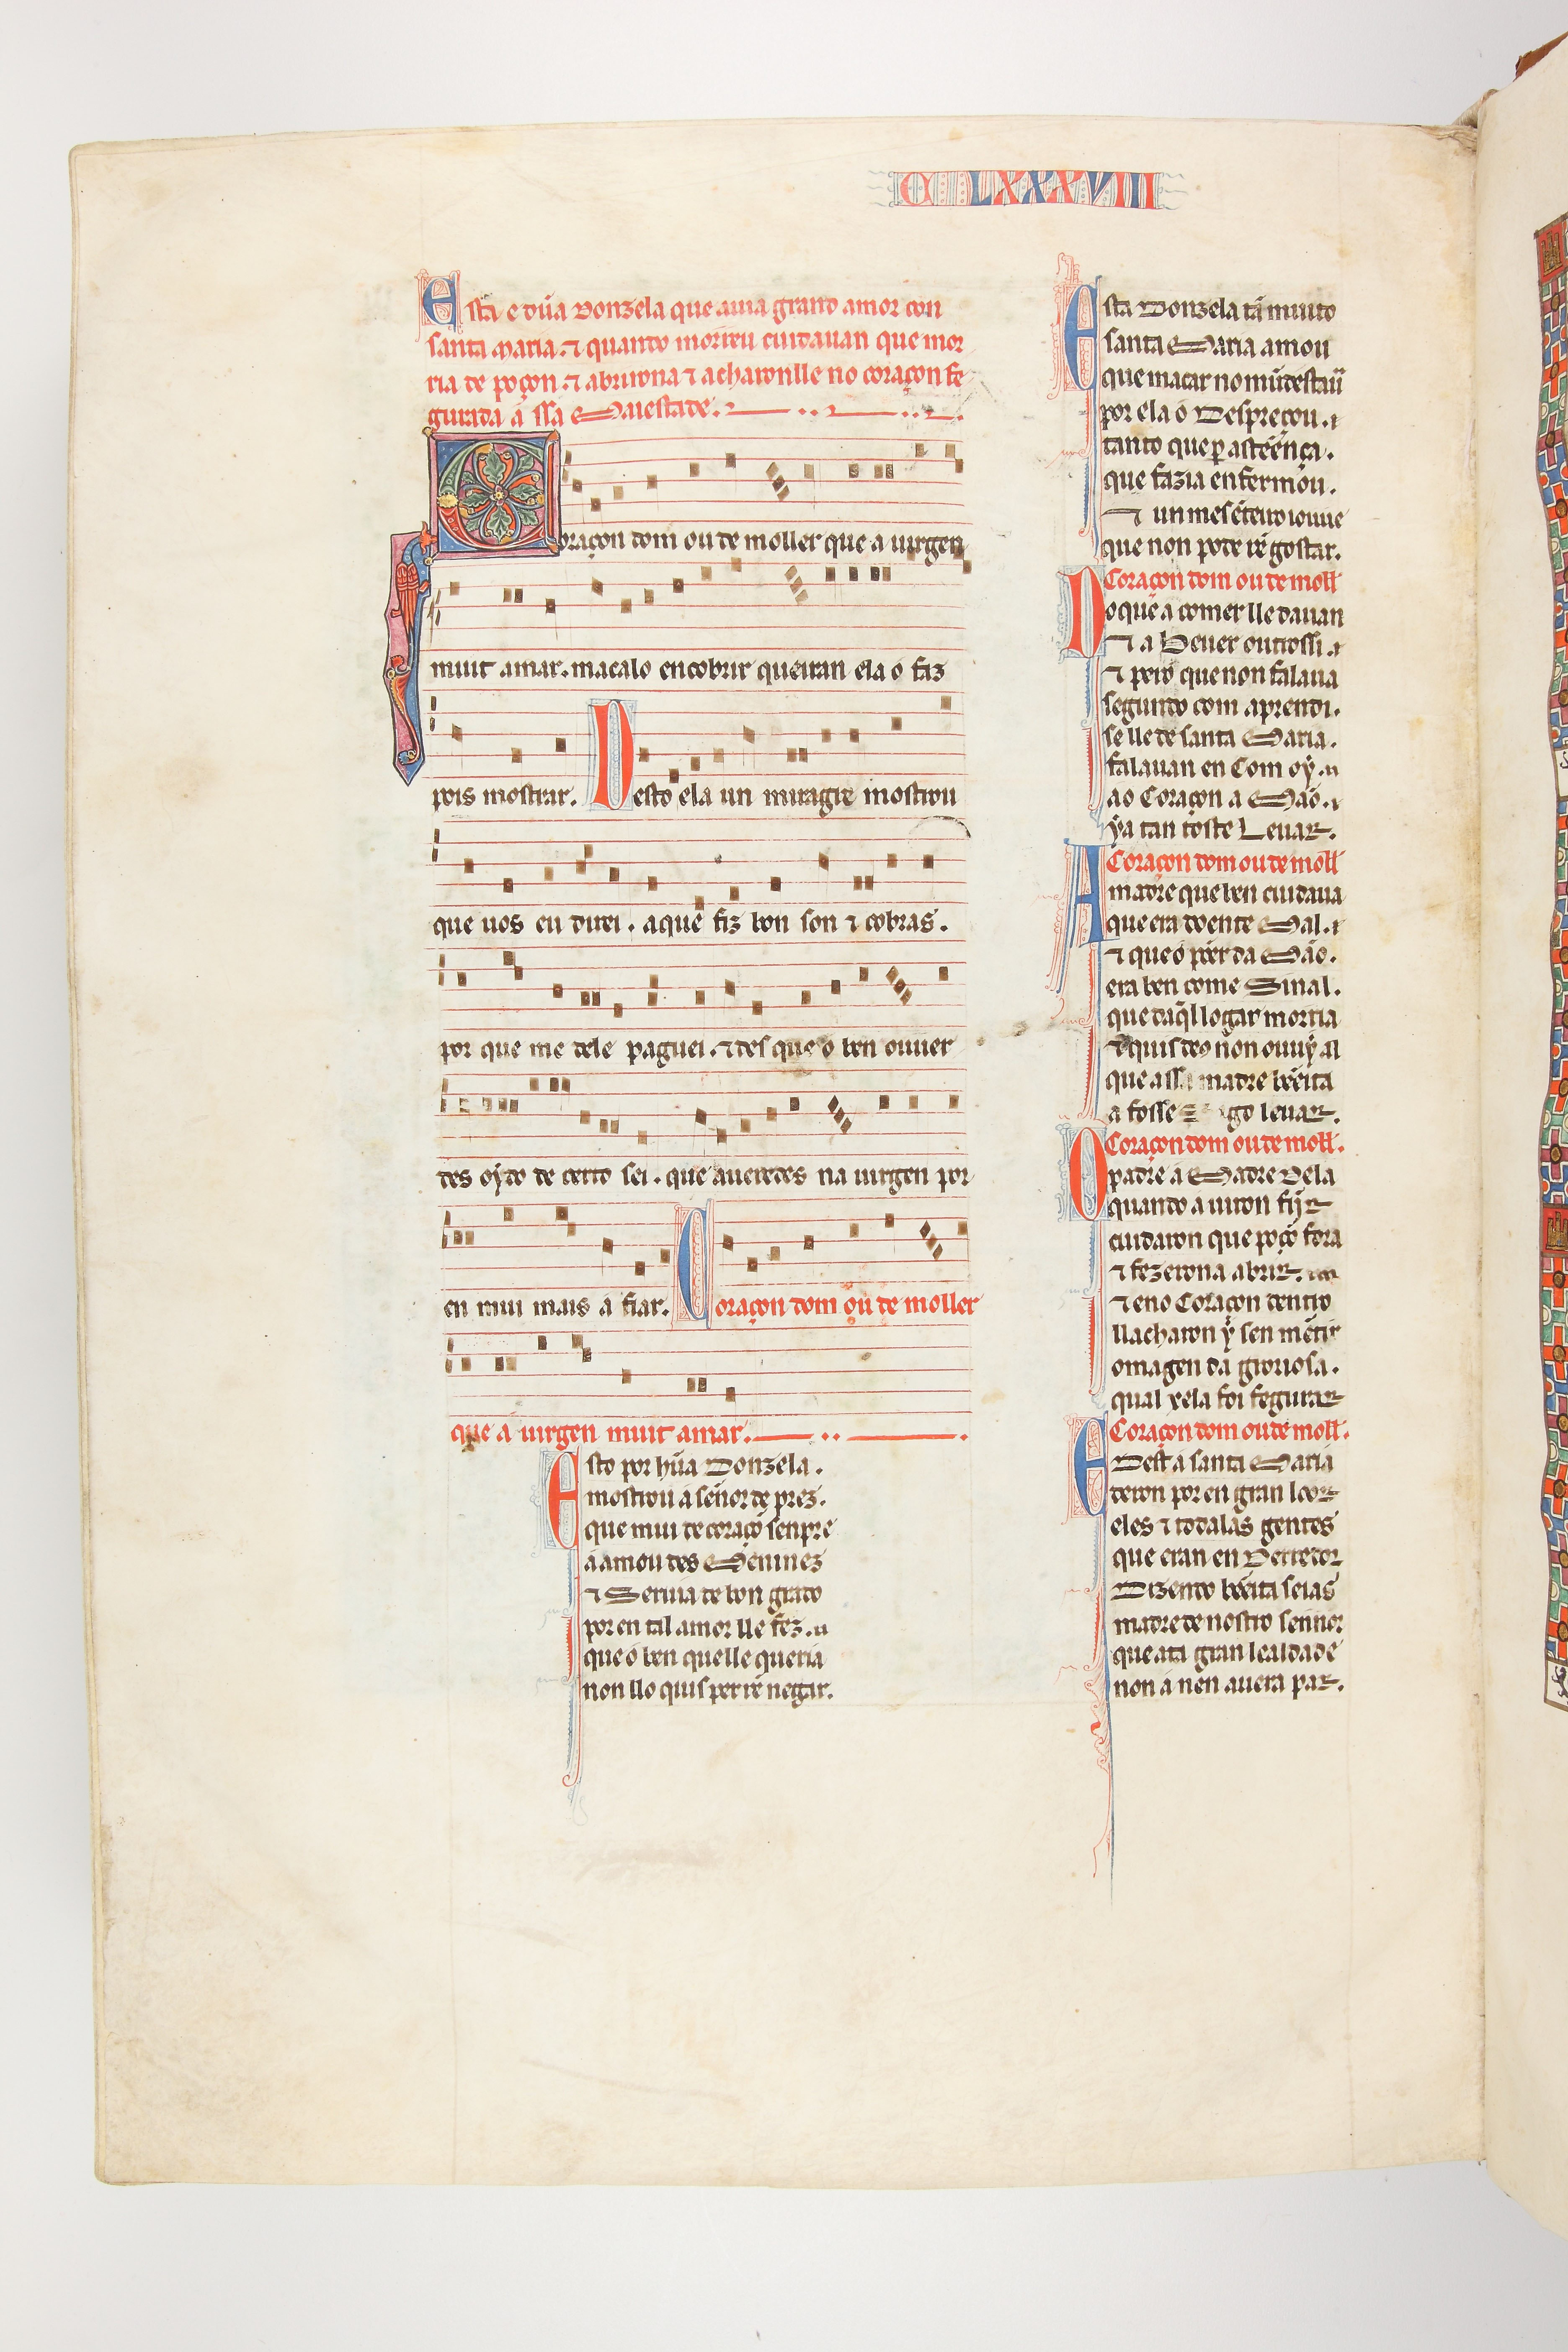 C LXXXVIII
Esta e dũa donzela que auia grand amor con
santa maria. ⁊ quando morreu cuidauan que mor
ria de poçon. ⁊ abrirona ⁊ acharonlle no coraçon fe
gurada á ssa Maiestade.
Coraçon dom ou de moller que a uirgen
muit amar. macalo encobrir queiran ela o faz
pois mostrar. Desto ela un miragre mostrou
que uos eu direi. aque fiz bon son ⁊ cobras.
por que me dele paguei. ⁊ des que o ben ouuer
des oydo de certo sei. que aueredes na uirgen por
en mui mais a fiar. Coraçon dom ou de moller
que á uirgen muit amar.
Esto por hũa Donzela.
mostrou á señor de prez.
que mui de coraçõ senpre
á amou des Meninez
⁊ Seruia de bon grado
por en tal amor lle fez.
que ó ben quelle queria
non llo quis per rẽ negar.
Esta Donzela tã muito
santa Maria amou
que macar no mũdestaũ
por ela ó Despreçou.
tanto que ꝑ astẽença.
que fazia enfermou.
⁊ un mes ẽteiro iouue
que non pode rẽ gostar.
Coraçon dom ou de moll
Do que a comer lle dauan
⁊ a Beuer outrossi.
⁊ pero que non falaua
segundo com aprendi.
se lle de santa Maria.
falauan en Com oý.
ao Coraçon a Mão.
ýa tan toste Leuar.
Coraçon dom ou de moll
A madre que ben cuidaua
que era doente Mal.
⁊ que o põer da Mão.
era ben come Sinal.
que daq̃l logar morria
quis deꝯ non ouuý al
que a ssa madre bẽeita
a fosse go leuar.
Coraçon dom ou de moll.
O padre á Madre Dela
quando a uiron fĩjr
cuidaron que poçõ fora
⁊ fezerona abrir.
⁊ eno Coraçon dentro
llacharon ý sen mẽtir
omagen da groriosa.
qual xela foi fegurar
Coraçon dom ou de moll.
E Dest á santa Maria
deron por en gran loor
eles ⁊ todalas gentes
que eran en Derredor
Dizendo bẽeita seias
madre de nostro sennor
que ata gran lealdade
non á nen auera par.